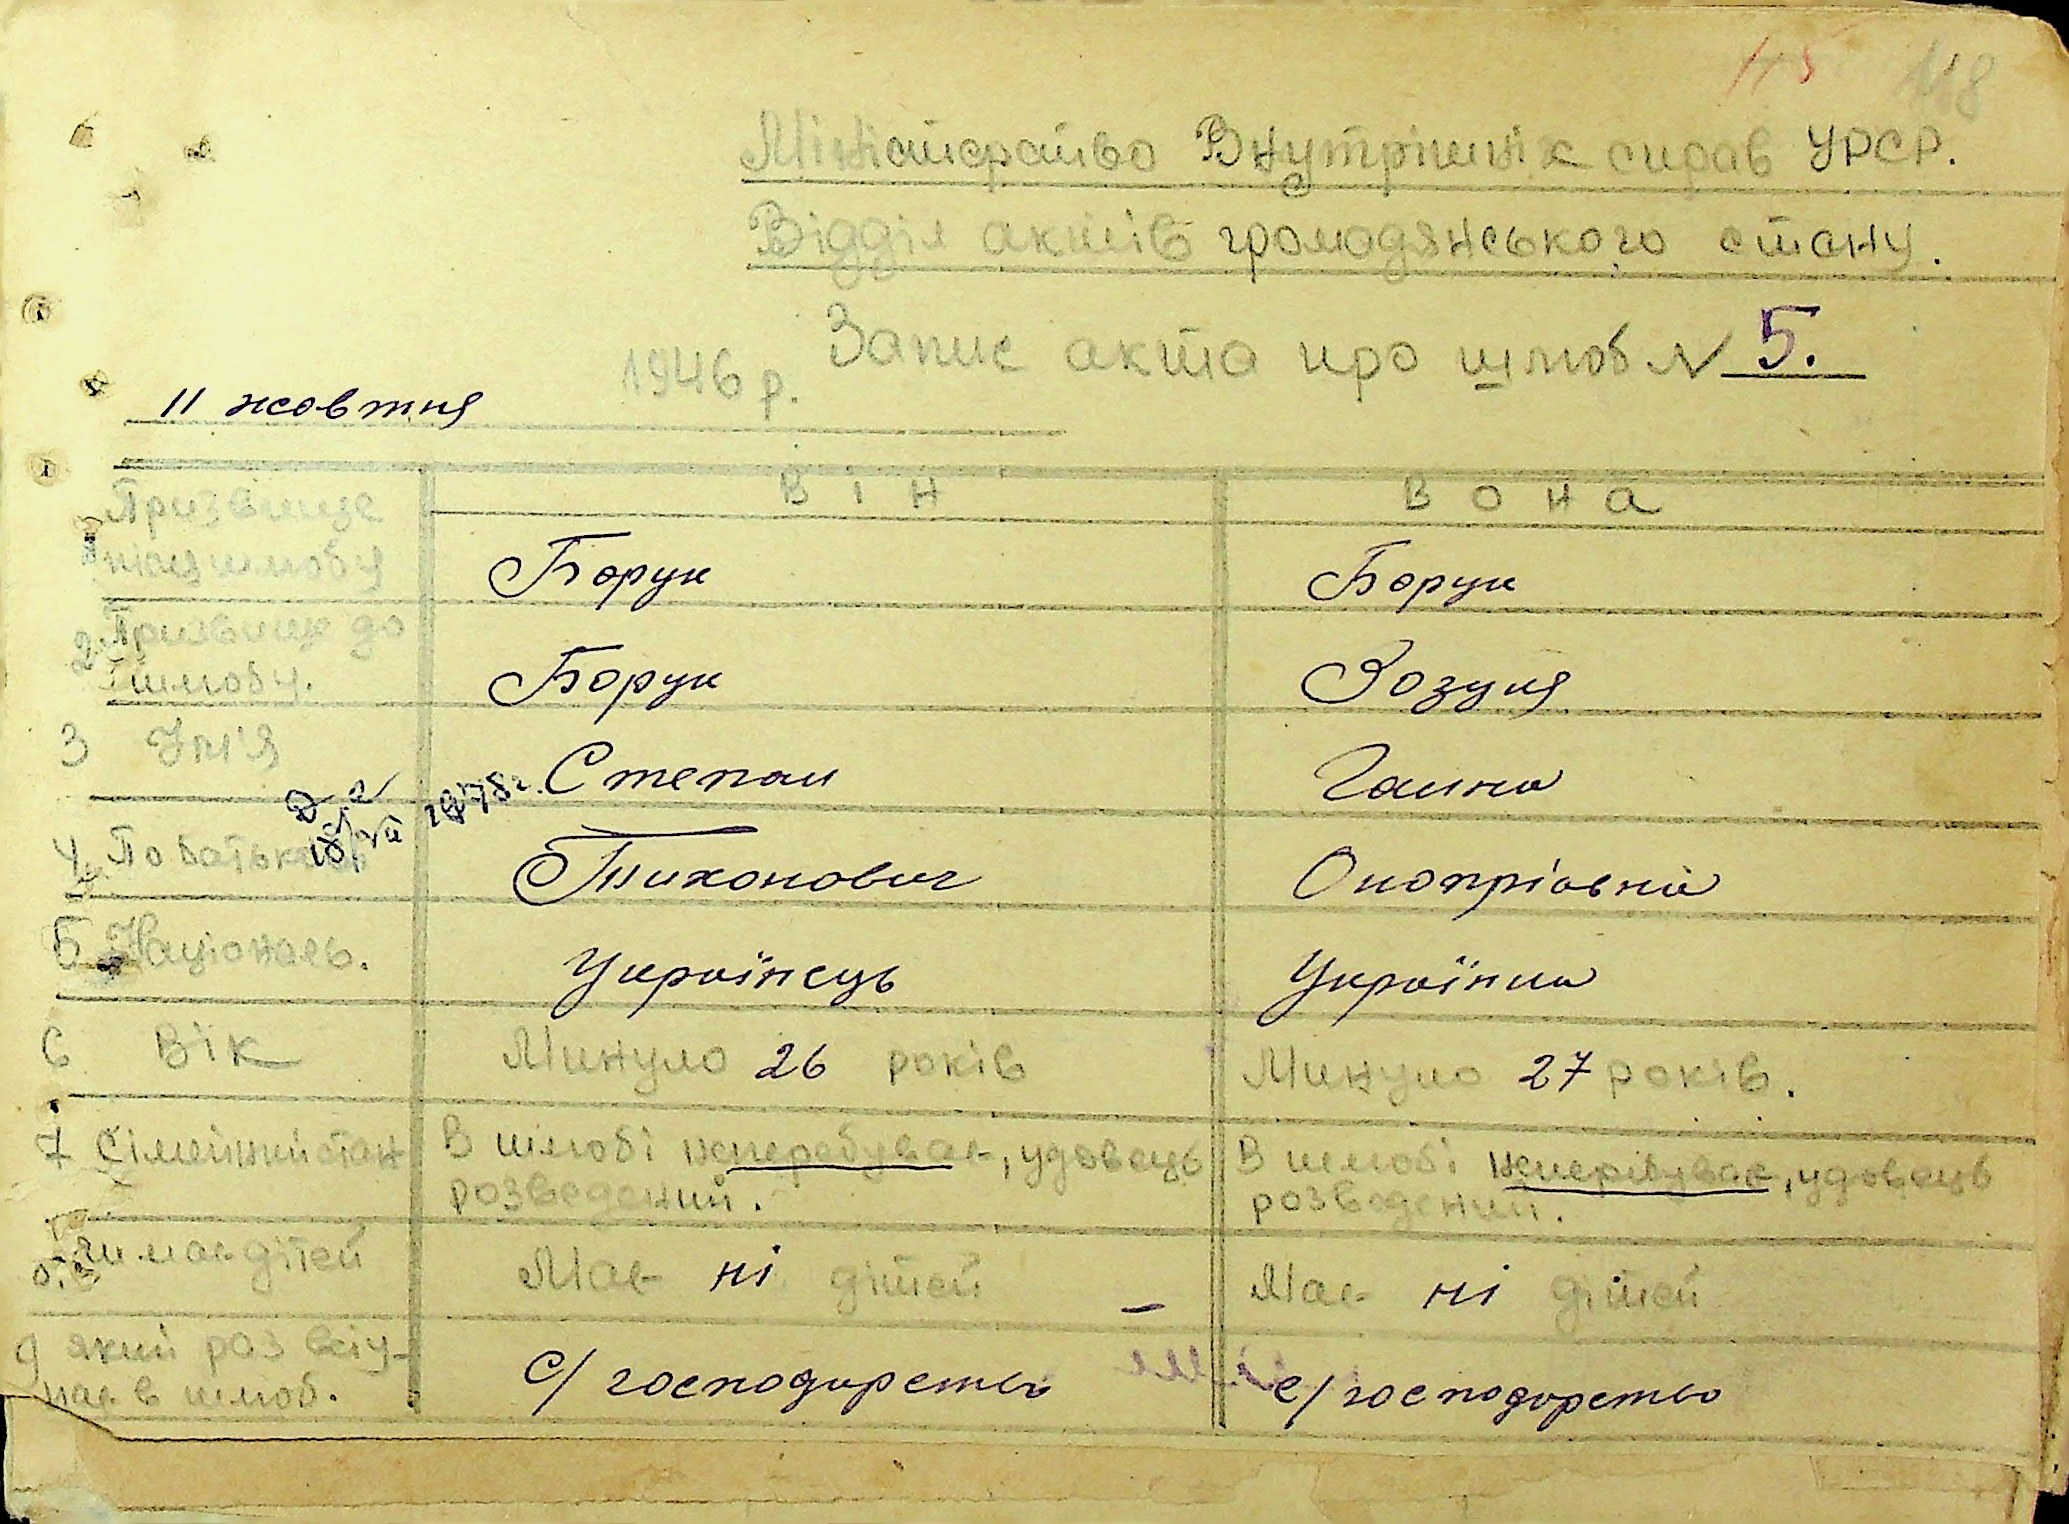 115 118
Міністерство Внутрішніх справ УРСР.
Відділ актів громадянського стану.
Запис акта про шлюб № 5.
11 жовтня 1946 р.
Він Вона
Призвище
після шлюбу Борук Борук
2. Призвище до
шлюбу. Борук Зозуля
3 Ім'я Степан Ганна
18/VII 1978 г.
4. По батькові Тихонович Оноприівна
5 Національ. Українець Українка
6 Вік Минуло 26 років Минуло 27 років.
7 Сімейний стан В шлюбі неперебуває, удовець В шлюбі неперебуває, удовець
розведений. розведений.
чи має дітей Має ні дітей – Має ні дітей
9 який раз всту-
пає в шлюб. с/господарство с/господарство